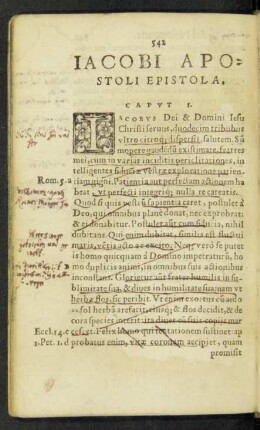 542
IACOBI APO-
STOLI EPISTOLA.
CAPVT I.
IACOBVS Dei & Domini Iesu
Christi seruus, duodecim tribubus
vltro citroq; dispersis, salutem. Sum
mopere gaudendū existimate, fratres
mei, cum in varias inciditis periclitationes, in
telligentes fiduciæ vestræ explorationē patien-
Rom. 5. a
tiam gigni. Patientia aut perfectam actionem ha
beat, vt perfecti integriq; nulla re egeatis.
Quod si quis vestrū sapientia caret, postulet à
Deo, qui omnibus planè donat, nec exprobrat,
& ei donabitur. Postulet aūt cum fiducia, nihil
dubitans. Qui enim dubitat, similis est fluctui
maris, vētis acto ac excito. Neq; verò se putet
is homo quicquam à Domino impetraturū, ho
mo duplicis animi, in omnibus suis actionibus
inconstans. Glorietur aūt frater humilis in su-
blimitate sua, & diues in humilitate sua: nam vt
herbæ flos, sic peribit. Vt enim exortus cū ardo
re sol herbā arefacit, eiusq; flos decidit, & de-
cora species interit: ita diues in suis copijs mar
Eccl. 14. c
cescet. Felix homo qui tentationem sustinet: ap
1. Pet. 1. d
probatus enim, vitæ coronam accipiet, quam
promisit